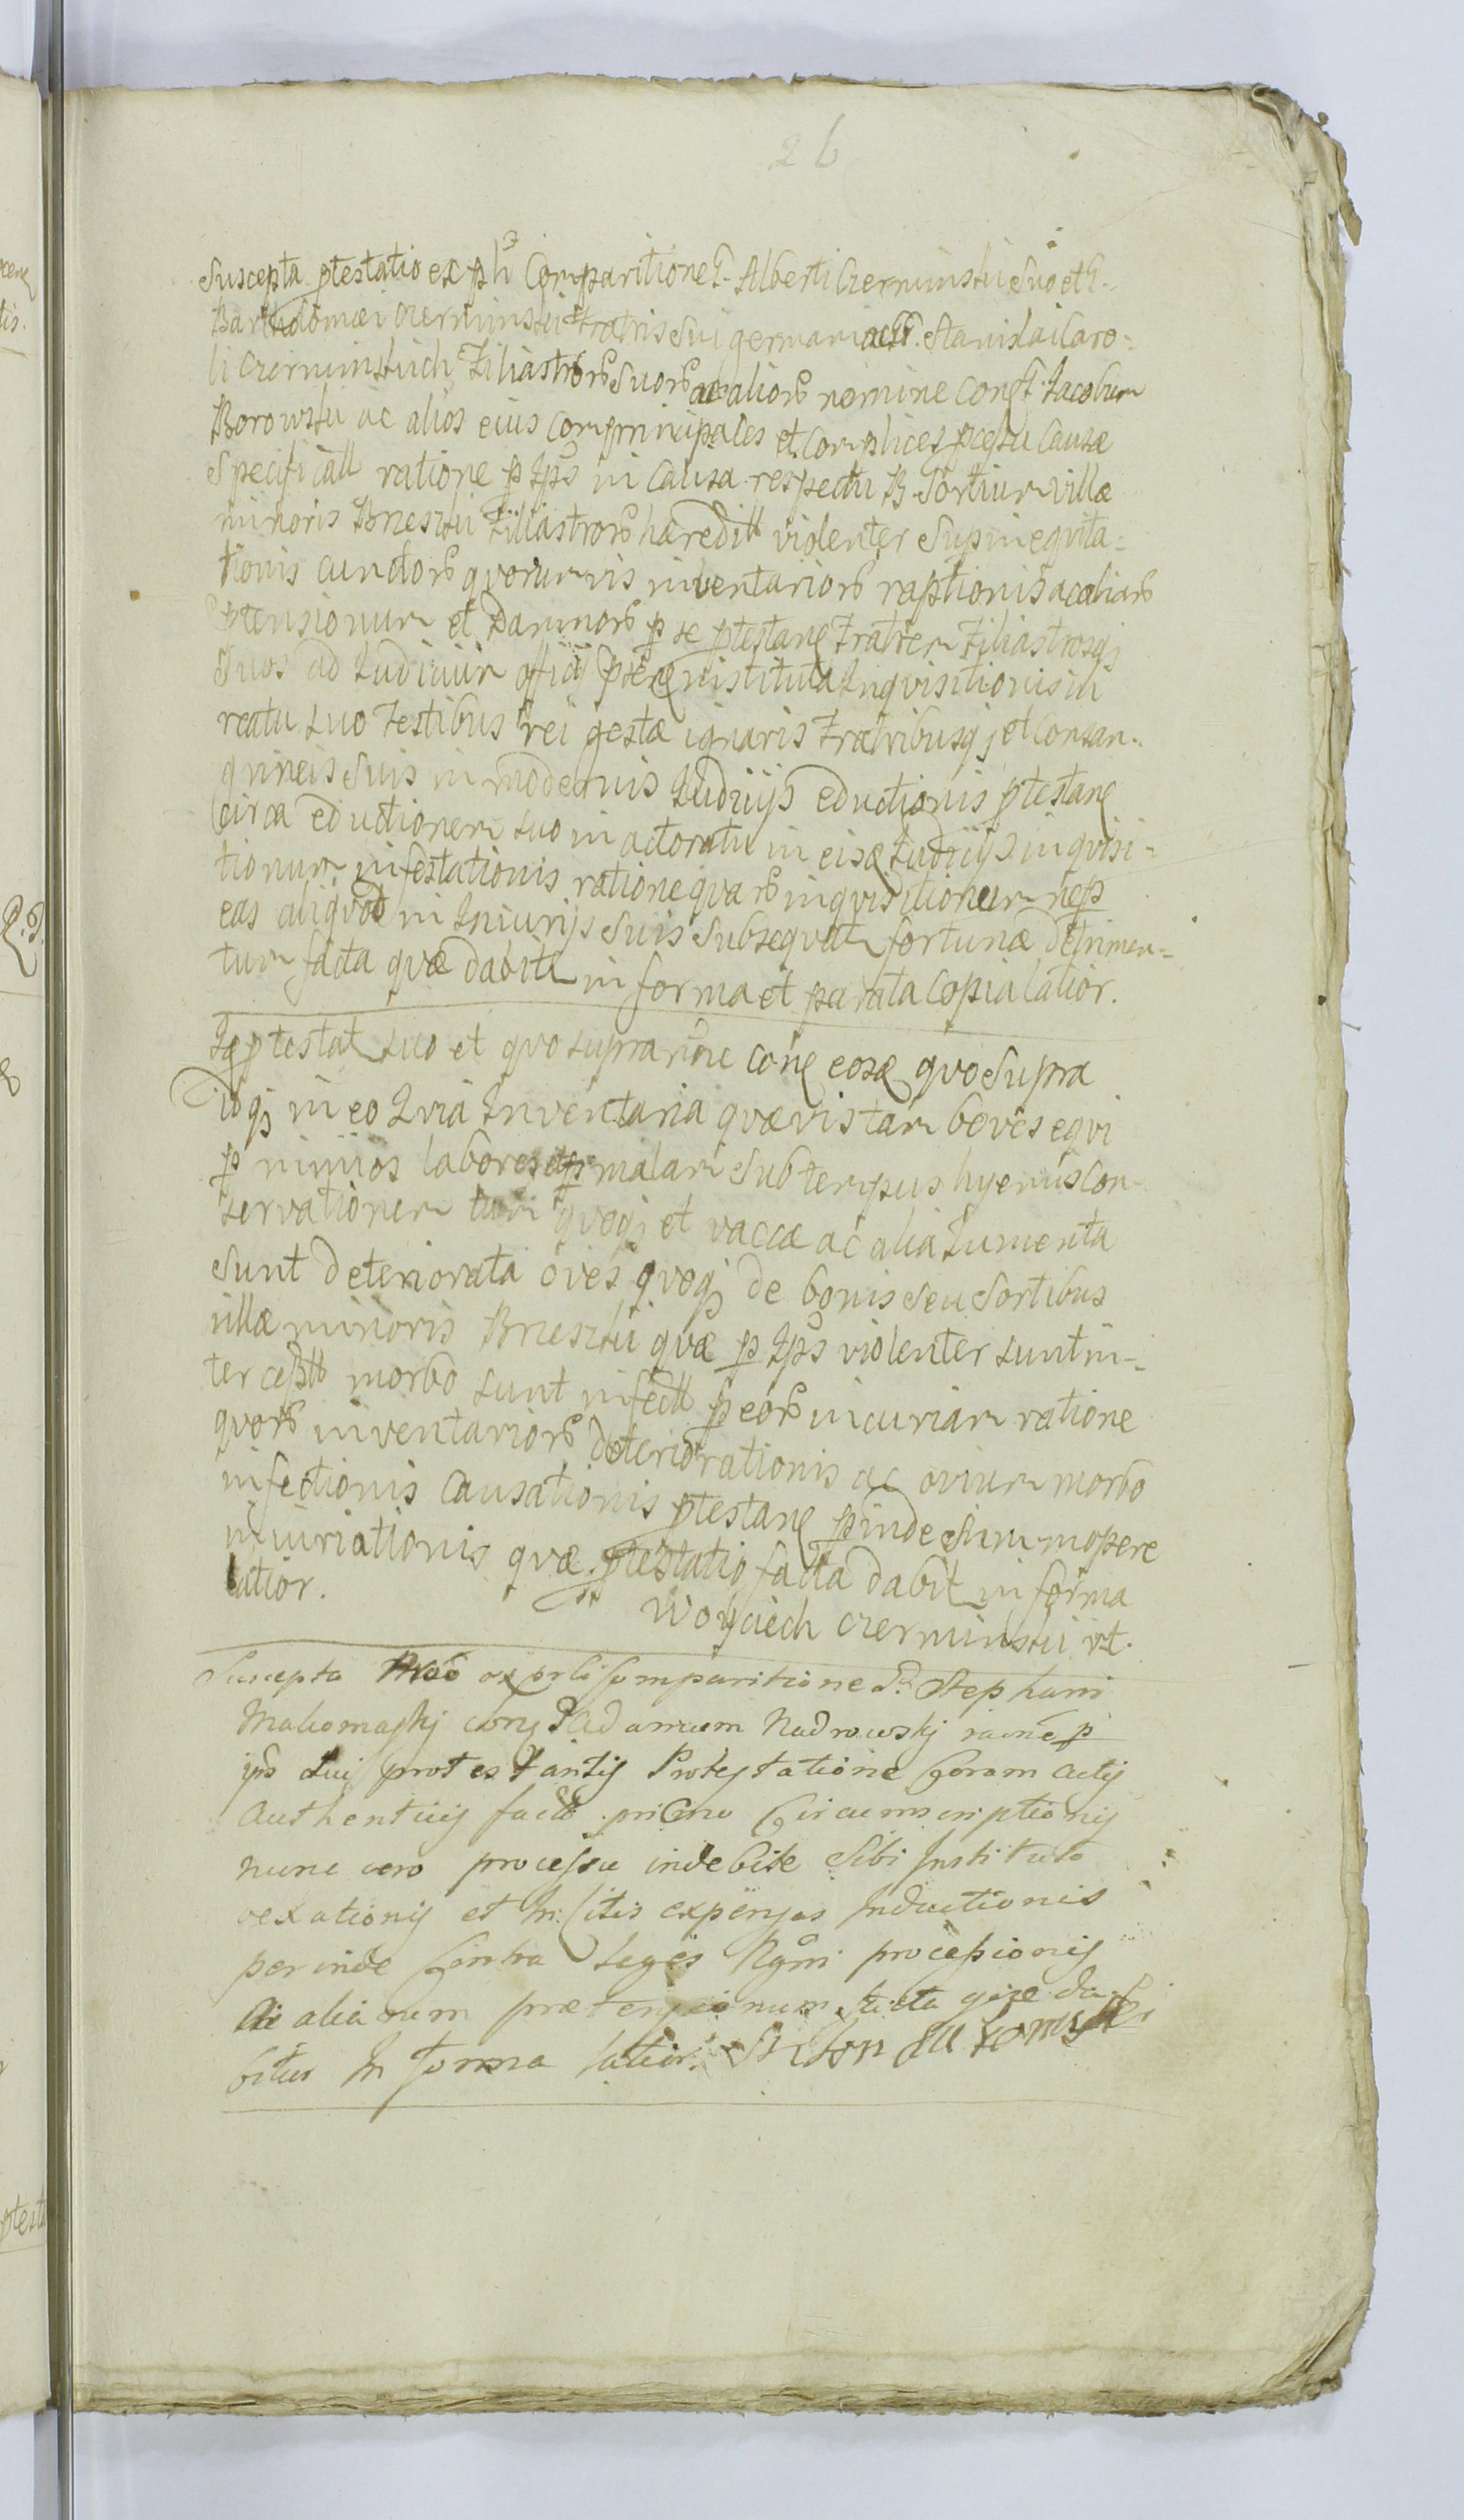 26
Suscepta ptestatio ex ph Comparitione G. Alberti Czerminski Suo et G.
Bartholomæi Czerminski Fratris Sui germani ac G. Stanislai Caro-
li Czerminskich Filiastror Suor ac alior nomine con G. Jacobum
Borowski ac alios eius comprincipales et complices pcessu causæ
specificatt ratione p Ips in causa respectu B. Sortium villæ
minoris Brieski Filiastror hæreditt violenter Supinequita-
tionis cunctor quorumvis inventarior raptionis ac aliar
ptensionum et Damnor p se ptestane Fratrem Filiastrosqj
Suos ad Judicium officij institutæ Inquisitionis in
reatu suo Testibus rei gestæ ignaris Fratribusqj et consan-
guineis Suis in modernis Judicijs eductionis ptestane
Circa eductionem suo in actoratu in eisd Judicijs inquisi-
tionum infestationis ratione quar inquisitionum
eas aliquod in Iniurijs Suis Subsequat fortunæ detrimen-
tum facta quæ dabitr in forma et parata copia latior.
Id ptestat suo et quo supra noie cone eosd quo Supra
idqj in eo Quia Inventaria quævis tam boves equi
p nimios labores malam Sub tempus hyemis con-
servationem tum quoqj et vaccæ ac alia Jumenta
Sunt deteriorata oves quoqj de bonis Seu Sortibus
villæ minoris Brieski quæ p Ips violenter sunt in-
terceptt morbo sunt infectt p eor incuriam ratione
quor inventarior deteriorationis ac ovium morbo
infectionis causationis ptestane pinde Summopere
iniuriationis quæ ptestatio facta dabit in forma
latior.
Woyciech Czerminski
Suscepta ex prli Comparitione Stephani
Adamum Nadrowskj racne p
ips sui protestantis Protestatione Coram actis
Authenticis factt primo Circumscriptionis
nunc vero processu indebite Sibi Instituto
vexationis et In litis expensas Inductionis
perinde Contra Leges Regni processionis
Ac aliarum prætensionum facta quæ da-
bitur In forma latior.